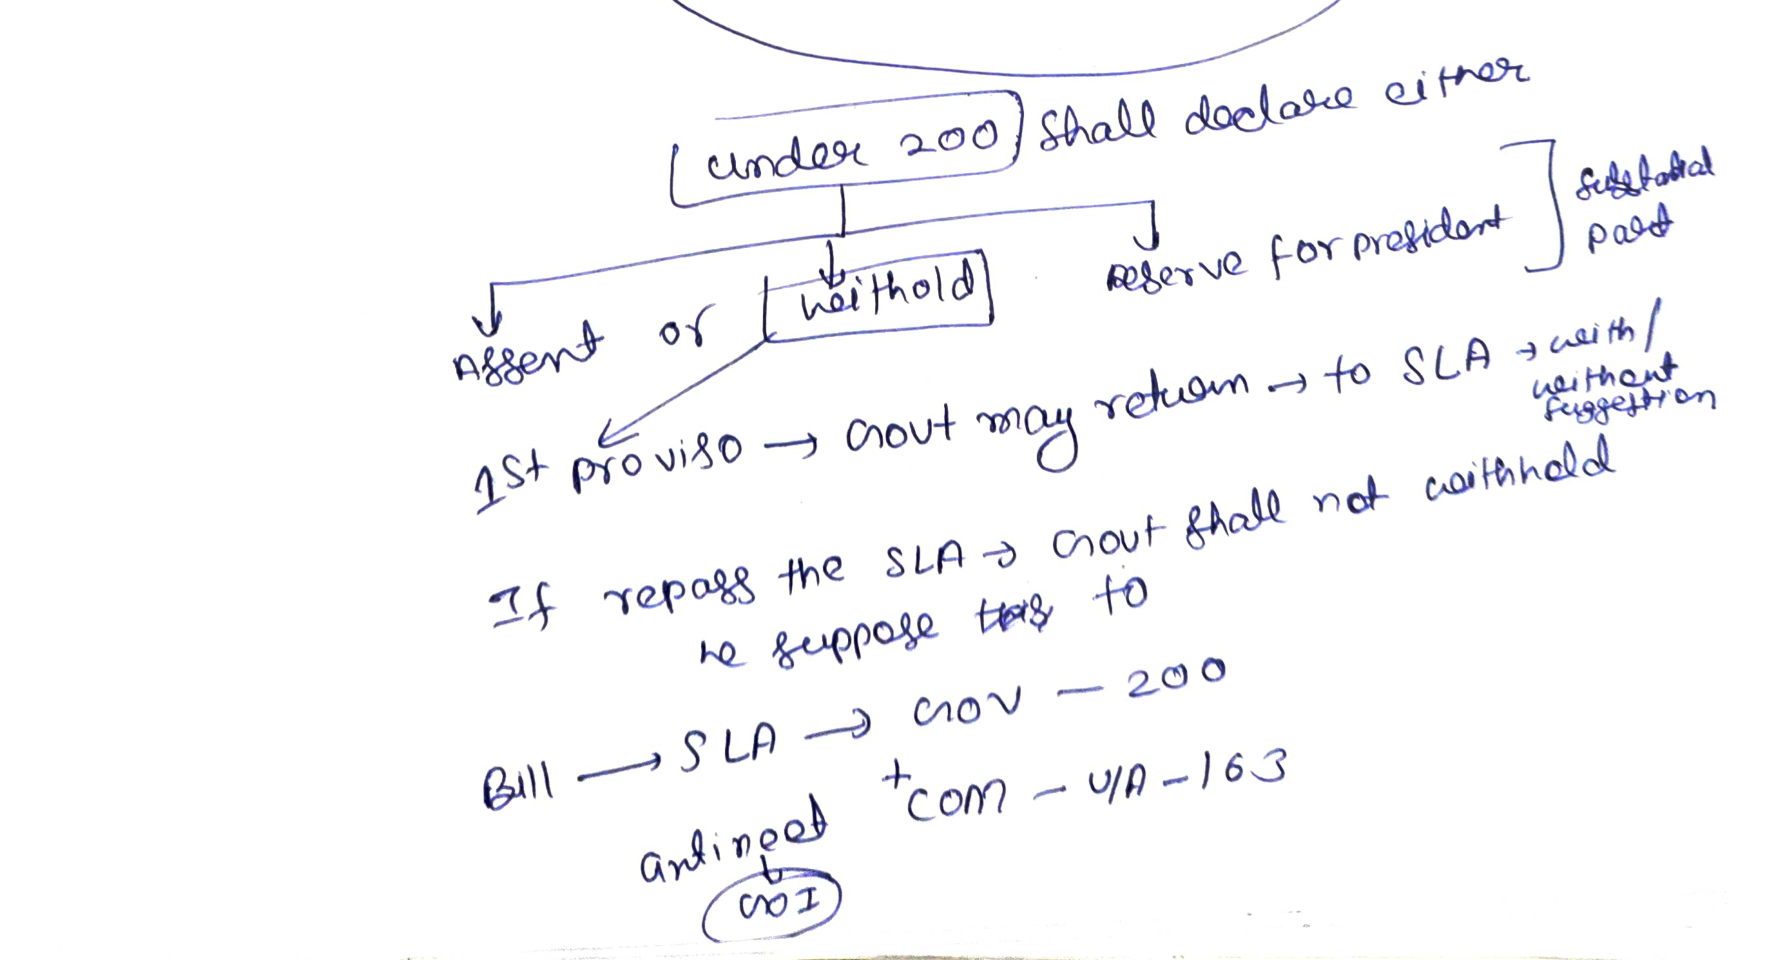 under 200 shall declare either
Assent or withold reserve for president
substatial
part
1st proviso → Govt may return → to SLA → with/
without
suggestion
If repass the SLA → Govt shall not withhold
he suppose to
Bill → SLA → Gov - 200
+ COM - U/A - 163
antineet
GOI